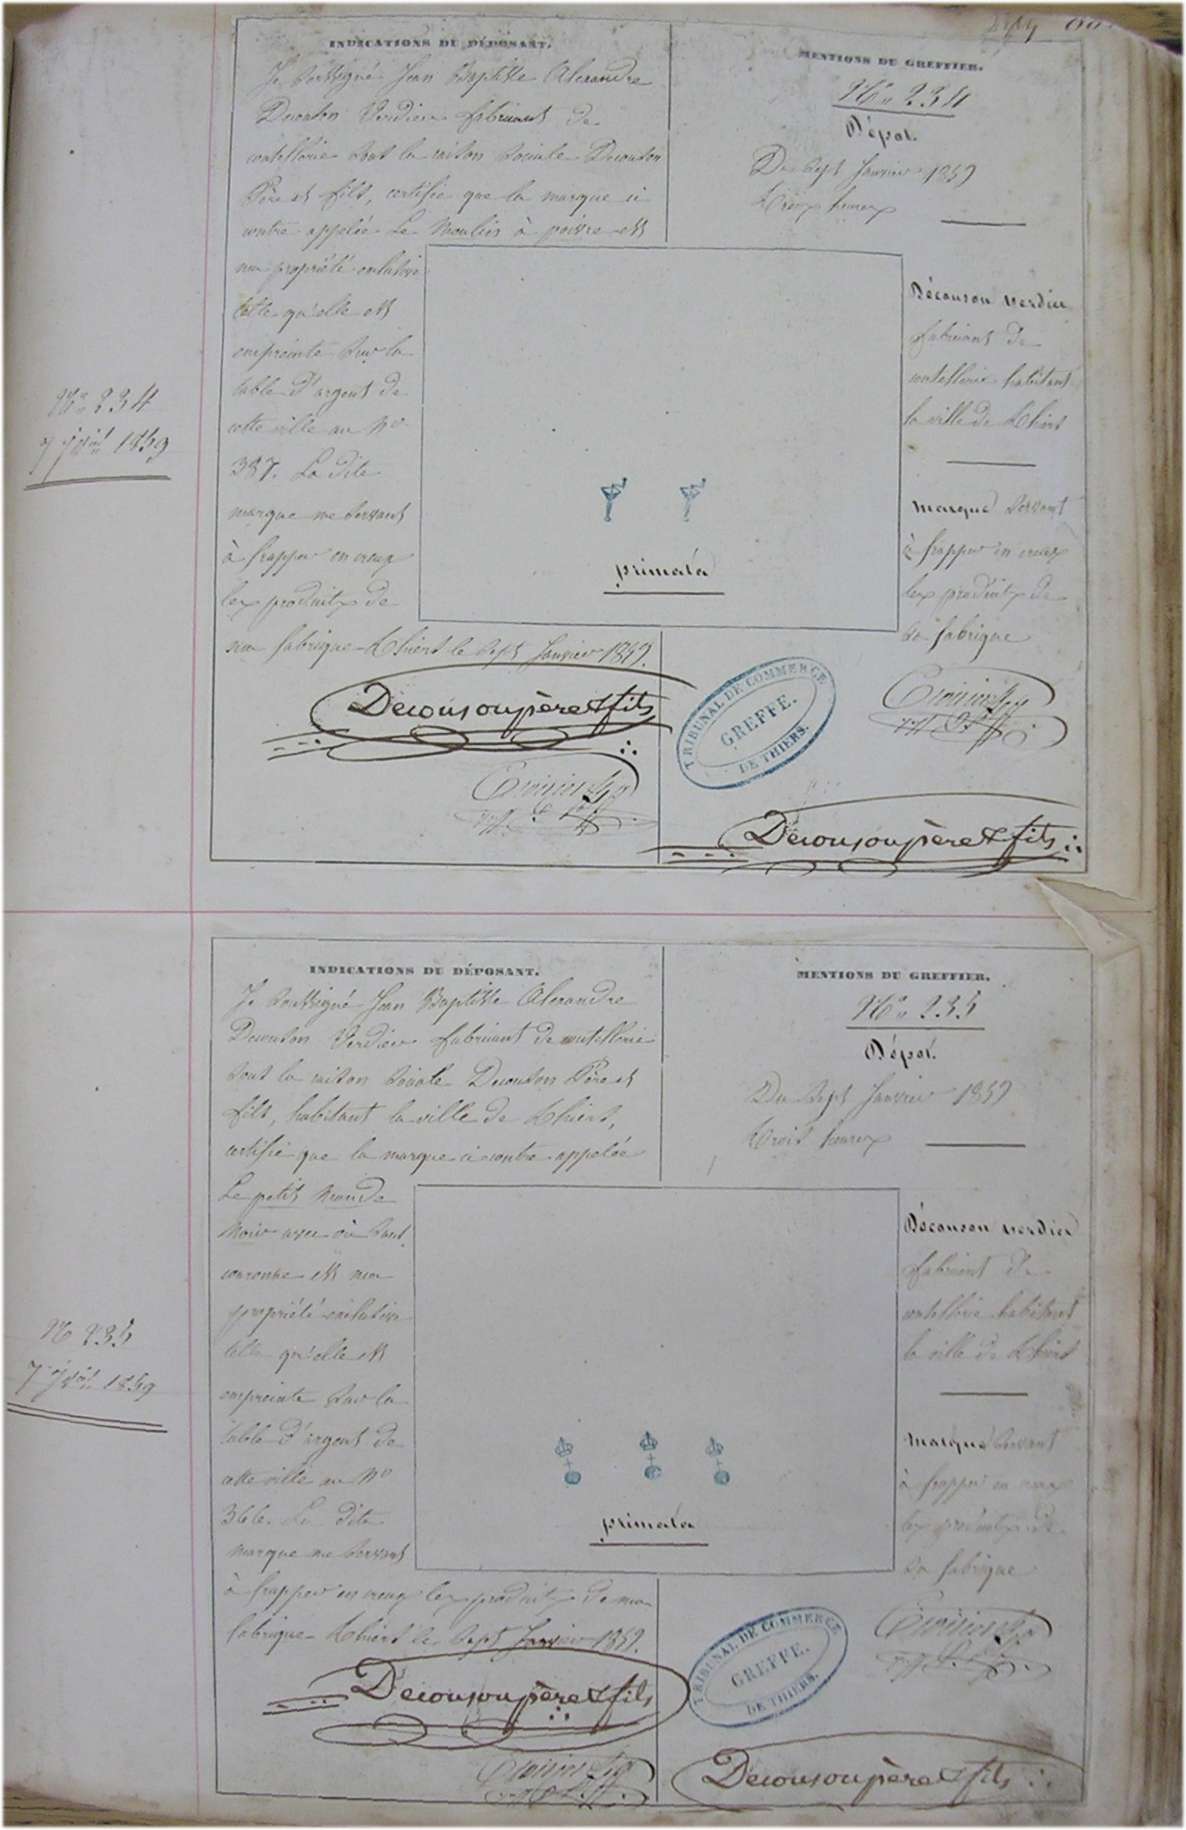 INDICATIONS DU DÉPOSANT.
Je soussigné Jean Baptiste Alexandre
Decouson Verdier fabricant de
coutellerie sous la raison sociale Decouson
Père et fils, certifie que la marque ci
contre appelée Le Moulin à poivre est
ma propriété exclusive
telle qu'elle est
empreinte sur la
table d'argent de
cette ville au No
387. La dite
marque me servant
à frapper en creux
les produits de
ma fabrique Thiers le sept Janvier 1859.
Decouson père & fils
MENTIONS DU GREFFIER.
No 234
Dépot.
Du sept Janvier 1859
heures
Découson verdier
fabricant de
coutellerie habitant
la ville de Thiers
marque servant
à frapper en creux
les produits de
sa fabrique
primata
TRIBUNAL DE COMMERCE
GREFFE.
DE THIERS.
Decouson père & fils
No 234
7 1859
INDICATIONS DU DÉPOSANT.
Je soussigné Jean Baptiste Alexandre
Decouson Verdier fabricant de coutellerie
sous la raison sociale Decouson Père et
fils, habitant la ville de Thiers,
certifie que la marque ci contre appelée
Le petit Monde
Noir avec au
couronne est ma
propriété exclusive
telle qu'elle est
empreinte sur la
table d'argent de
cette ville au No
366. La dite
marque me servant
à frapper en creux les produits de ma
fabrique Thiers le sept Janvier 1859.
Decouson père & fils
MENTIONS DU GREFFIER.
No 235
Dépot.
Du sept Janvier 1859
trois heures
Découson verdier
fabricant de
coutellerie habitant
la ville de Thiers
marque servant
à frapper en creux
les produits de
sa fabrique
primata
TRIBUNAL DE COMMERCE
GREFFE.
DE THIERS.
Decouson père & fils
No 235
7 1859